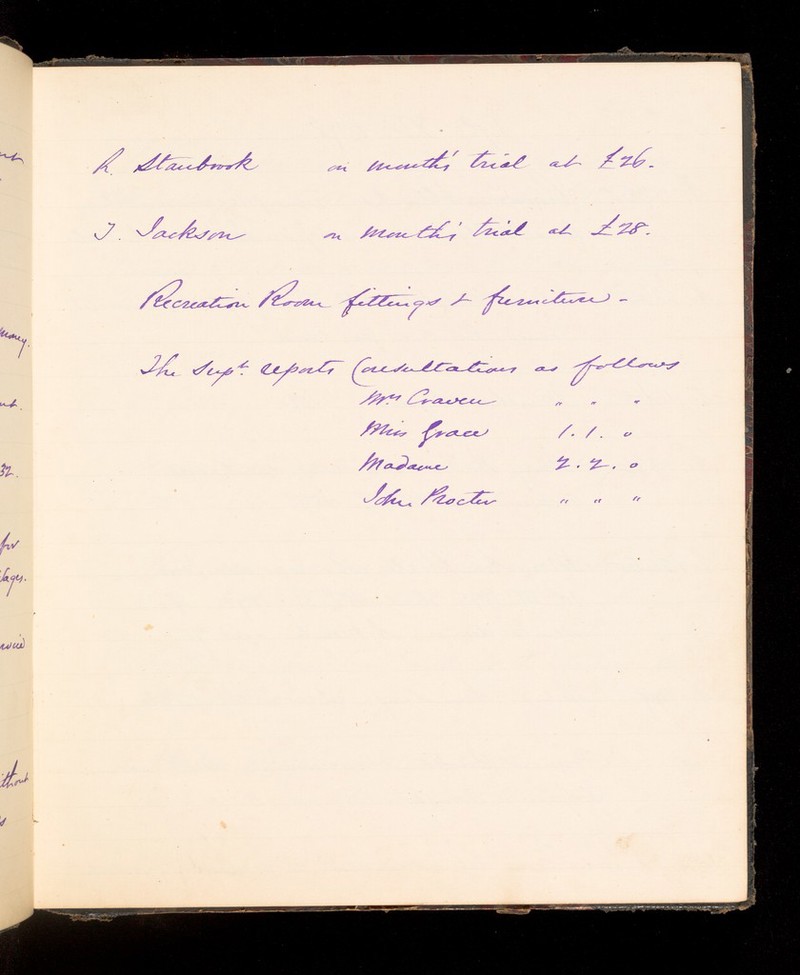 R. Stanbrook on month's trial at £26.
J. Jackson on month's trial at £28.
Recreation Room fittings & furniture -
The Supt. reports Consultations as follows
Mrs Craven " " "
Miss Grace 1.1. 0
Madame 2.2.0
John Procter " " "
money.
32.
for